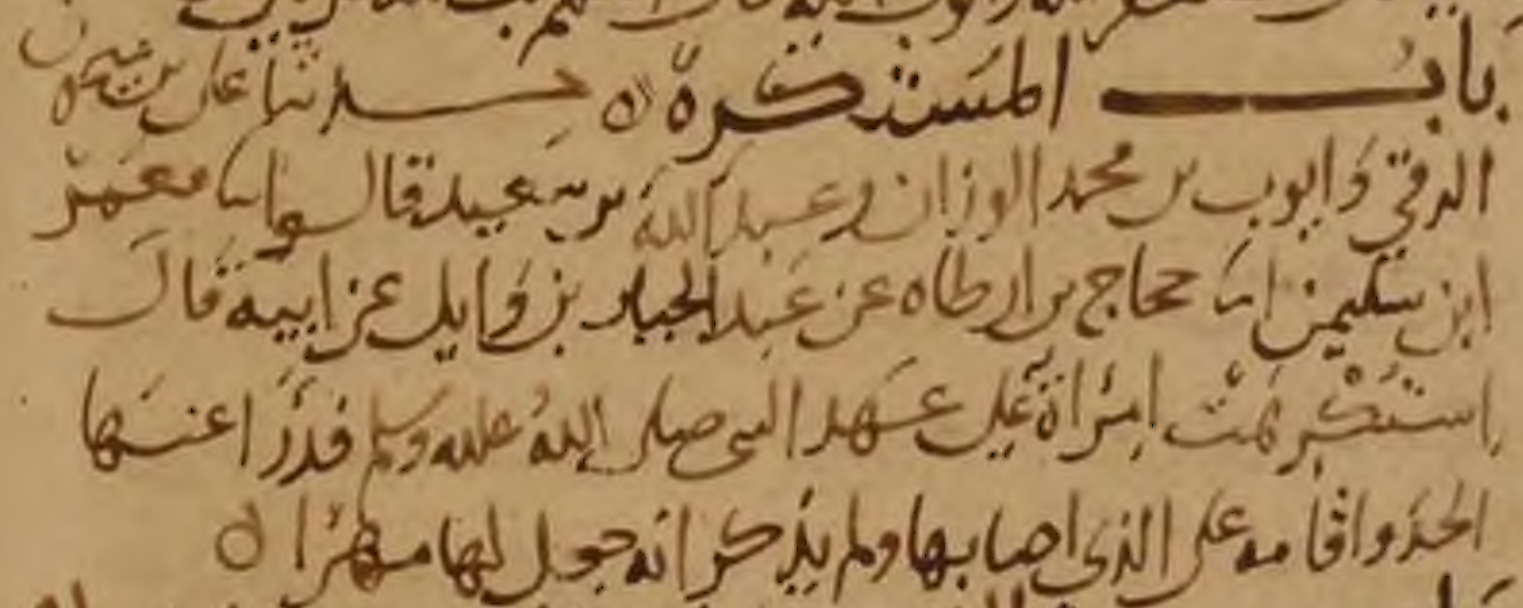 باب المستكرهة حدثنا علي بن ميمون
الرقي وايوب بن محمد الوزان وعبد الله بن سعيد قالوا ثنا معمر
ابن سليمن انا حجاج بن ارطاه عن عبد الجبار بن وايل عن ابيه قال
استكرهت امراة على عهد النبي صلى الله عليه وسلم فدرا عنها
الحد واقامه على الذي اصابها ولم يذكر انه جعل لها مهرا